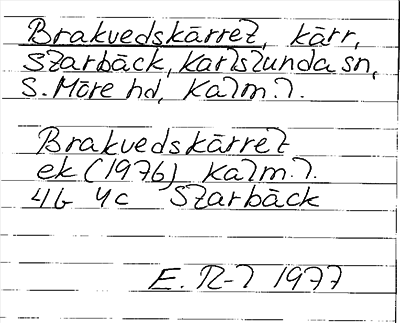 Brakvedskärret, kärr,
Slarbäck, Karlslunda sn,
S. Möre hd, Kalm. l.
Brakvedskärret
ek (1976) Kalm. l.
4G 4c Slarbäck
E. R-l 1977